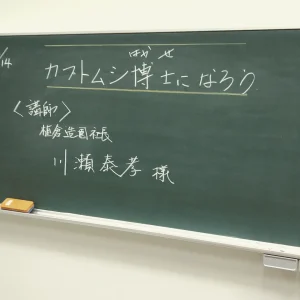 /14
はかせ
カブトムシ博士になろう
〈講師〉
植倉造園社長
川瀬泰孝様